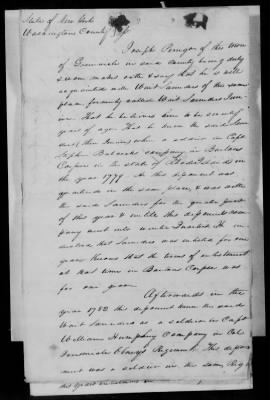 State of New York
Washington County } ss.
Joseph of the town
of Greenwich in said county being duly
sworn maketh & says that he is well
acquainted with Wait Saunders of the same
place, formerly called Wait Saunders Jun
ior. That he believes him to be seventy
years of age. That he knew the said Saun
ders, then Junior, when a soldier in Capt.
Stephen Babcocks company in Bartons
Corpse in the state of Rhode Island in
the year 1779. As this deponent was
in the same place, & was with
the said Saunders for the greater part
of the year & untile this deponents com
pany went into winter Quarters. He un
derstood that Saunders was enlisted for one
year. Knows that the term of enlistment
at that time in Bartons Corpse was
for one year.
Afterwards in the
year 1782 this deponent knew the said
Wait Saunders as a soldier in Capt
William Humphry Company in Col.
Jeremiah Olneys Regiment. This depo
nent was a soldier in the same Reg